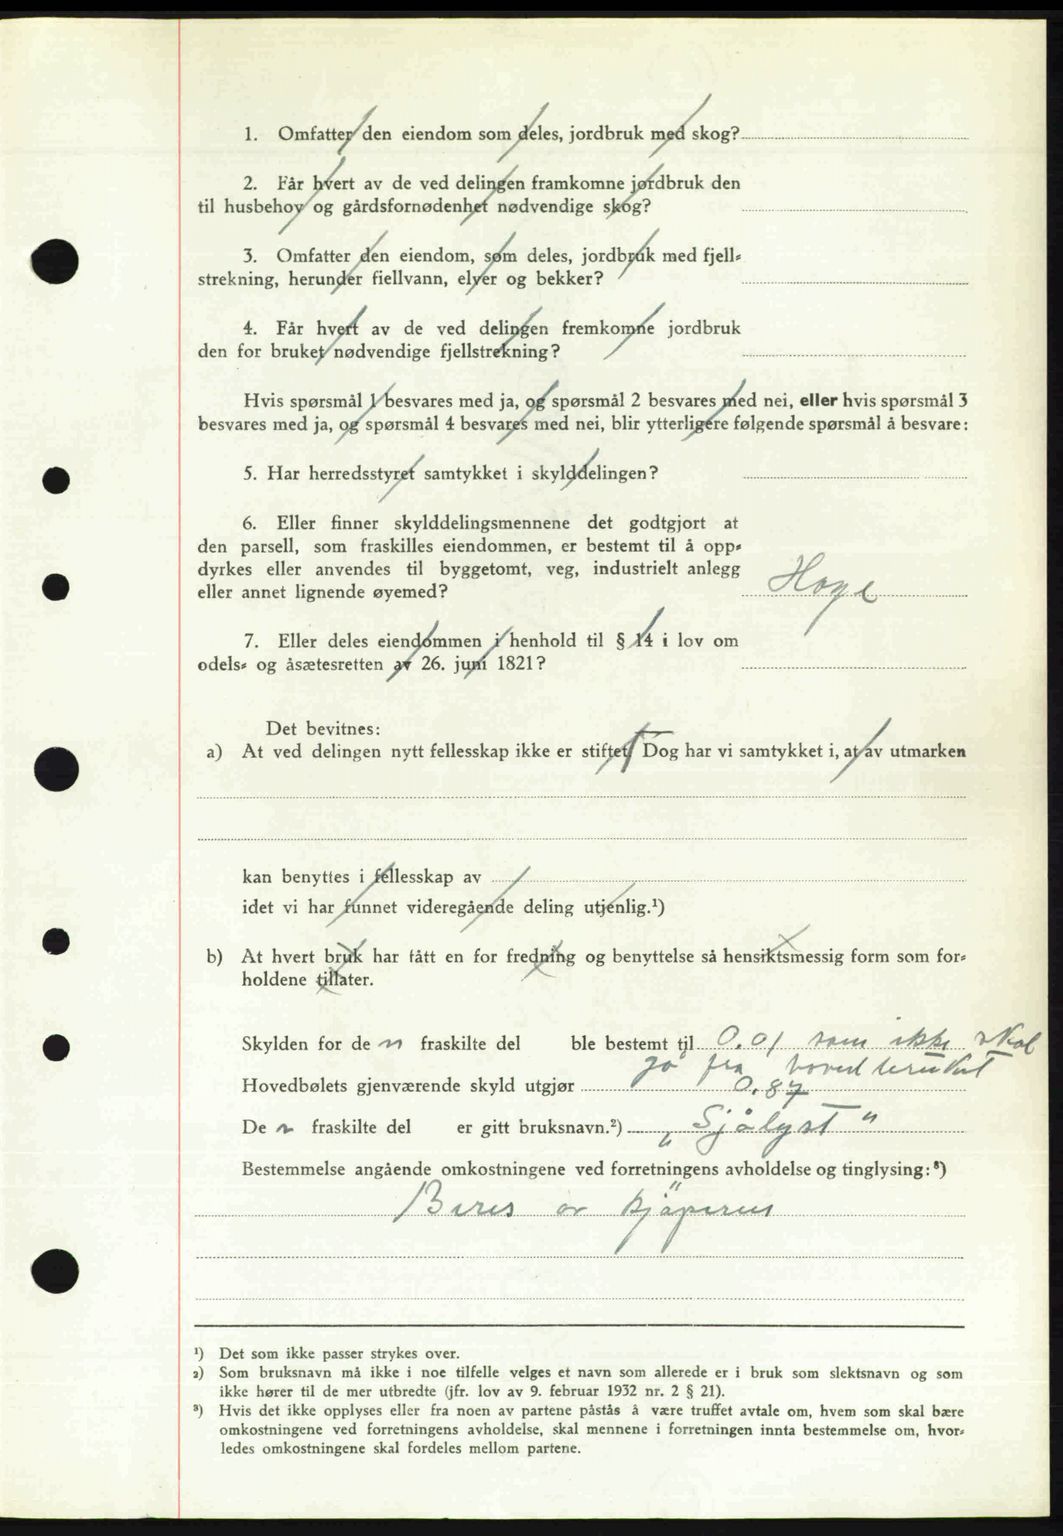 1. Omfatter den eiendom som deles, jordbruk med skog?
2. Får hvert av de ved delingen framkomne jordbruk den
til husbehov og gårdsfornødenhet nødvendige skog?
3. Omfatter den eiendom, som deles, jordbruk med fjell-
strekning, herunder fiellvann, elver og bekker?
4. Får hvert av de ved delingen fremkomne jordbruk
den for bruket nødvendige fjellstrekning?
Hvis spørsmål 1 besvares med ja, og spørsmål 2 besvares med nei, eller hvis spørsmål 3
besvares med ja, og spørsmål 4 besvares med nei, blir ytterligere følgende spørsmål å besvare:
5. Har herredsstyret samtykket i skylddelingen?
6. Eller finner skylddelingsmennene det godtgjort at
den parsell, som fraskilles eiendommen, er bestemt til å opp-
dyrkes eller anvendes til byggetomt, veg, industrielt anlegg
eller annet lignende øyemed? Hage
7. Eller deles eiendommen i henhold til § 14 i lov om
odels- og åsætesretten av 26. juni 1821?
Det bevitnes:
a) At ved delingen nytt fellesskap ikke er stiftet. Dog har vi samtykket i, at av utmarken
kan benyttes i fellesskap av
idet vi har funnet videregående deling utjenlig.¹)
b) At hvert bruk har fått en for fredning og benyttelse så hensiktsmessig form som for-
holdene tillater.
Skylden for den fraskilte del ble bestemt til 0.01 som ikke skal
gå fra hovedbruket
Hovedbølets gjenværende skyld utgjør 0.87
Den fraskilte del er gitt bruksnavn.²) „Sjålyst"
Bestemmelse angående omkostningene ved forretningens avholdelse og tinglysing:³)
Bæres av kjöperen
¹) Det som ikke passer strykes over.
²) Som bruksnavn må ikke i noe tilfelle velges et navn som allerede er i bruk som slektsnavn og som
ikke hører til de mer utbredte (jfr. lov av 9. februar 1932 nr. 2 § 21).
³) Hvis det ikke opplyses eller fra noen av partene påstås å være truffet avtale om, hvem som skal bære
omkostningene ved forretningens avholdelse, skal mennene i forretningen innta bestemmelse om, hvor-
ledes omkostningene skal fordeles mellom partene.